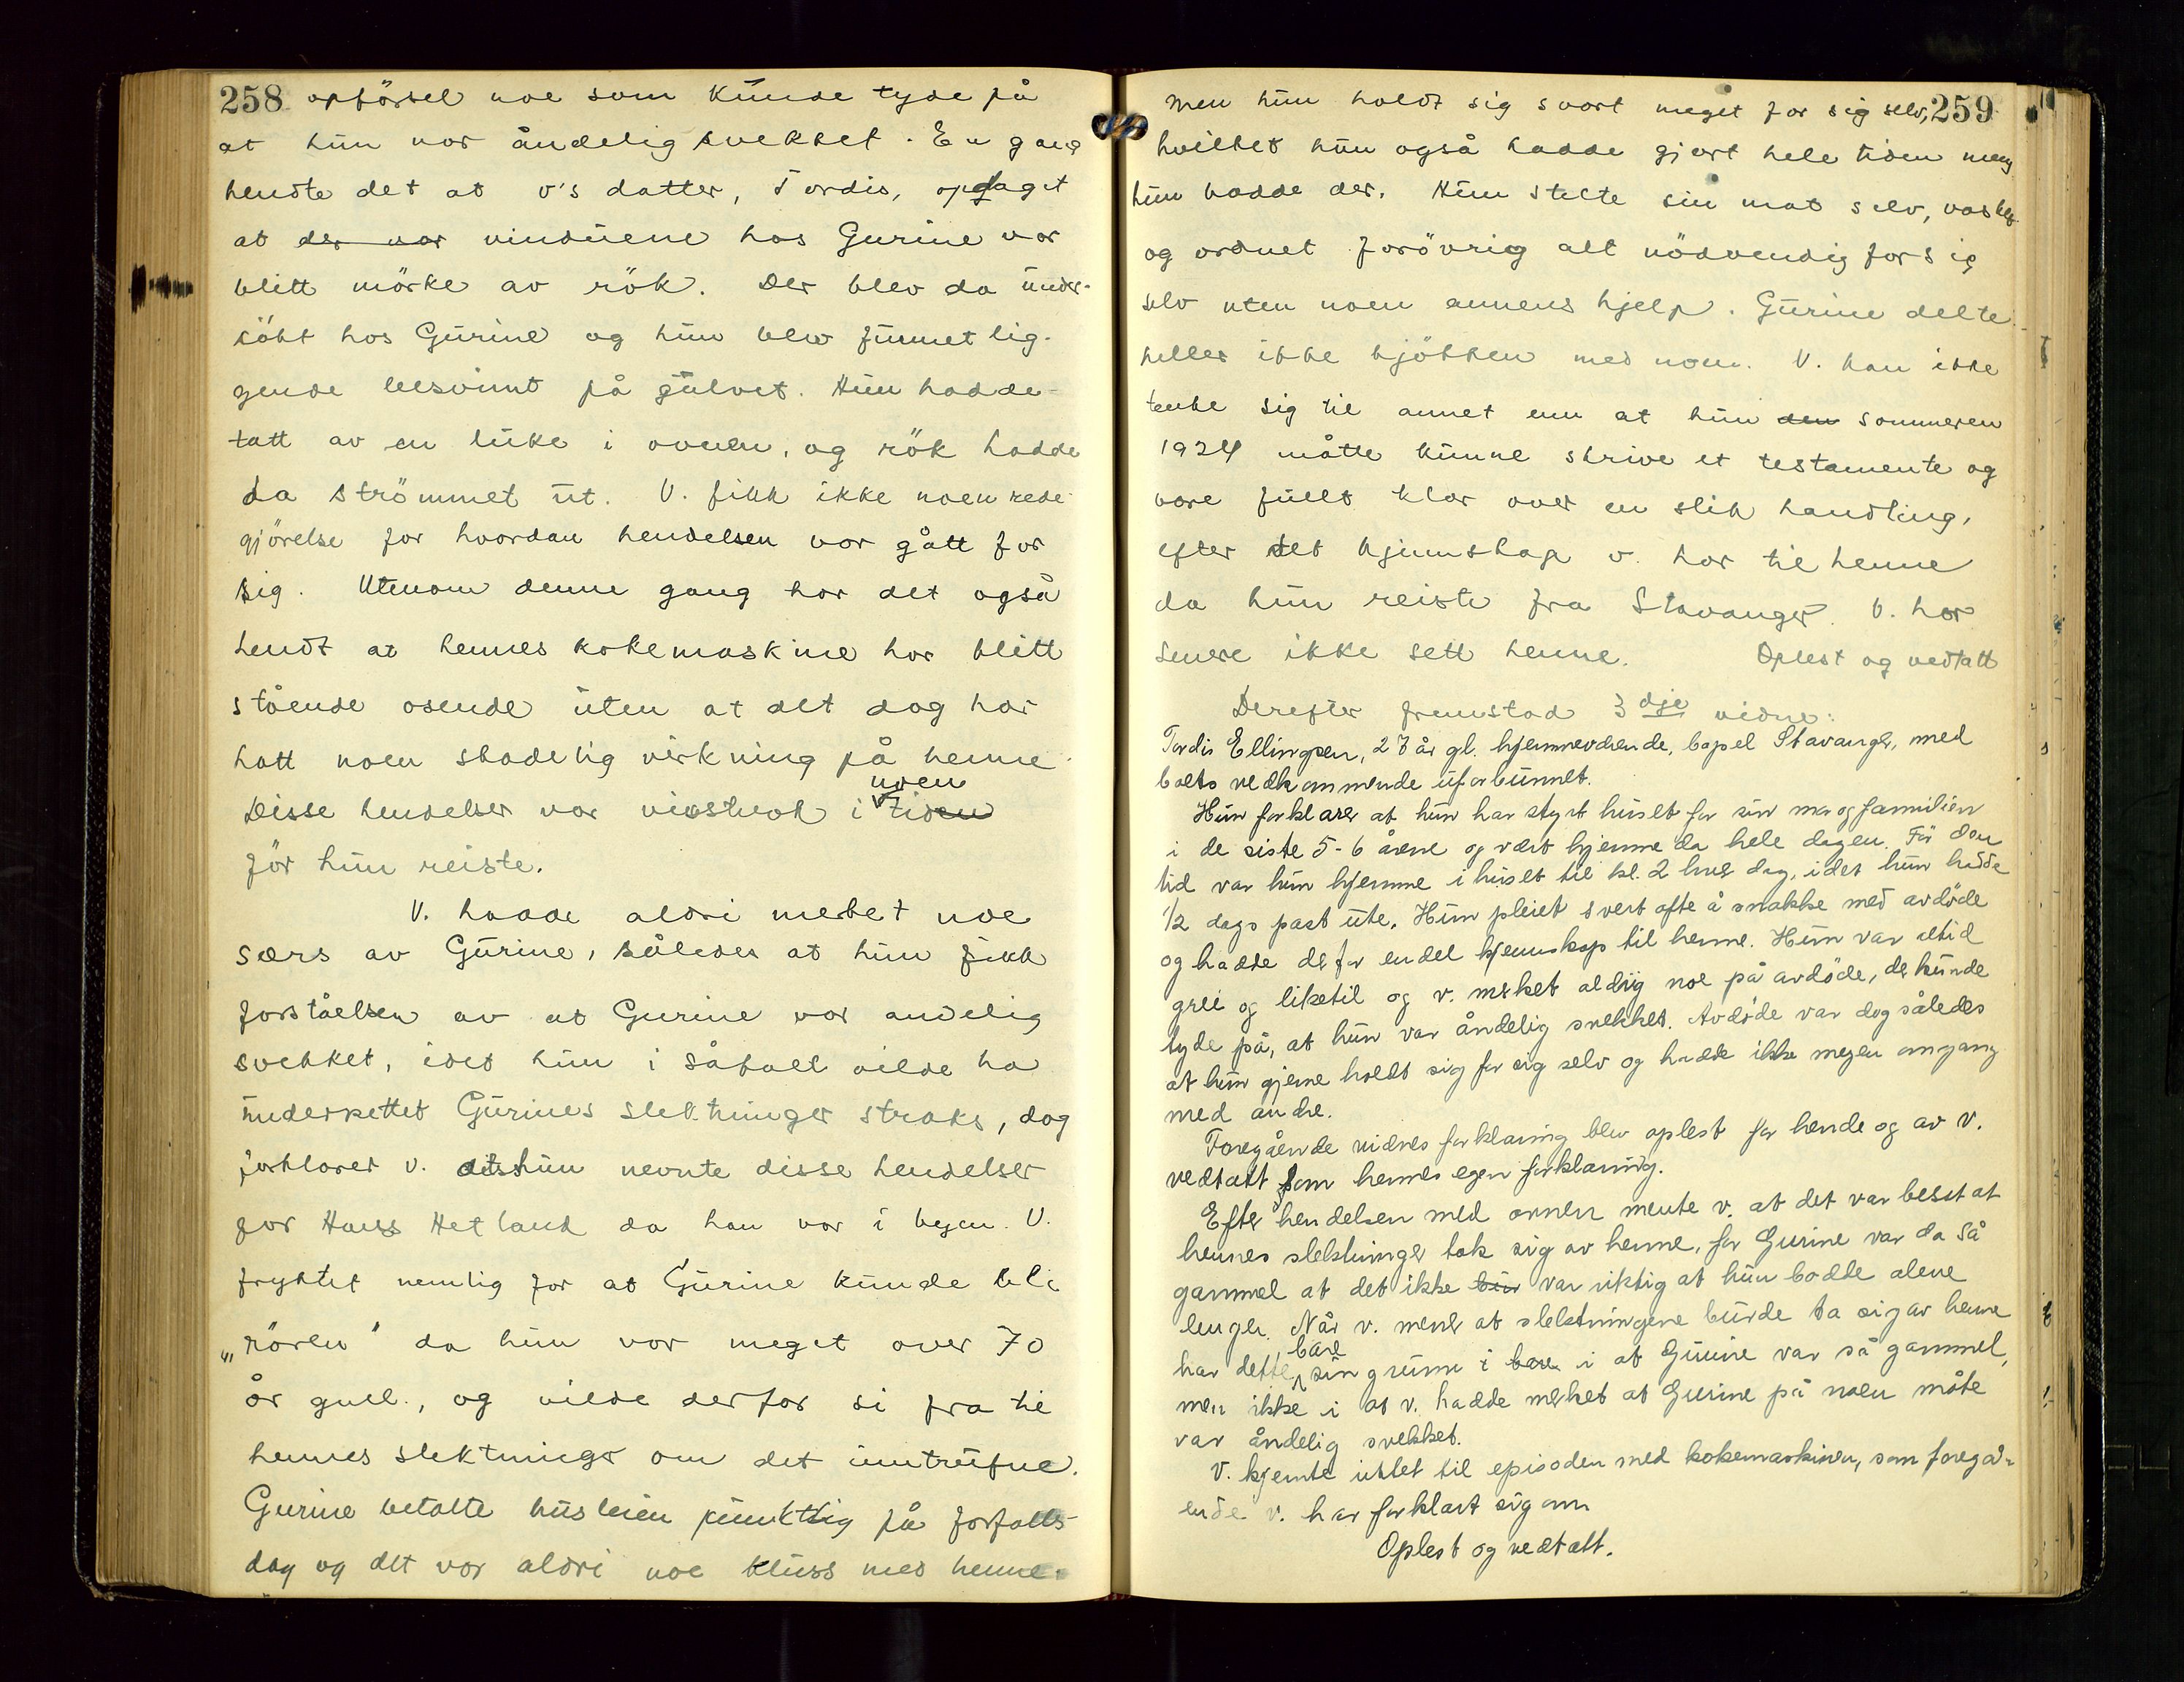 258 opförsel noe som kunde tyde på
at hun var åndelig svekket. En gang
hendte det at v's datter, Tordis, opdaget
at der var vinduene hos Gurine var
blitt mörke av rök. Der blev da under-
sökt hos Gurine og hun blev funnet lig-
gende besvimt på gulvet. Hun hadde
tatt av en luke i ovnen, og rök hadde
da strömmet ut. V. fikk ikke noen rede-
gjörelse for hvordan hendelsen var gått for
sig. Utenom denne gang har det også
hendt at hennes kokemaskine har blitt
stående osende uten at det dog har
hatt noen skadelig virkning på henne.
noen
Disse hendelser var visstnok i tiden
för hun reiste.
V. hadde aldri merket noe
særs av Gurine, således at hun fikk
forståelsen av at Gurine var åndelig
svekket, idet hun i såfall vilde ha
underrettet Gurines slektninger straks, dog
forklarer v. at hun nevnte disse hendelser
for Hans Hetland da han var i byen. V.
fryktet nemlig for at Gurine kunde bli
„rören" da hun var meget over 70
år gml., og vilde derfor si fra til
hennes slektninger om det inntrufne.
Gurine betalte husleien punktlig på forfalls-
dag og det var aldri noe kluss med henne.
men hun holdt sig svært meget for sig selv, 259
hvilket hun også hadde gjort hele tiden mens
hun bodde der. Hun stelte sin mat selv, vasket
og ordnet forövrig alt nödvendig for sig
selv uten noen annens hjelp. Gurine delte
heller ikke kjökken med noen. V. kan ikke
tenke sig til annet enn at hun den sommeren
1924 måtte kunne skrive et testamente og
være fullt klar over en slik handling,
efter det kjennskap v. har til henne
da hun reiste fra Stavanger. V. har
senere ikke sett henne. Oplest og vedtatt
Derefter fremstod 3dje vidne:
Tordis Ellingsen, 27 år gl. hjemmeværende, bopel Stavanger, med
boets vedkommende uforbunnet.
Hun forklarer at hun har styrt huset for sin mor og familien
i de siste 5-6 årene og vært hjemme da hele dagen. Før den
tid var hun hjemme i huset til kl. 2 hver dag, idet hun hadde
1/2 dags post ute. Hun pleiet svert ofte å snakke med avdöde
og hadde derfor endel kjennskap til henne. Hun var altid
grei og liketil og v. merket aldrig noe på avdöde, der kunde
tyde på, at hun var åndelig svekket. Avdöde var dog således
at hun gjerne holdt sig for sig selv og hadde ikke megen omgang
med andre.
Foregående vidnes forklaring blev oplest for hende og av v.
vedtatt som hennes egen forklaring.
Efter hendelsen med ovnen mente v. at det var besst at
hennes slektninger tok sig av henne, for Gurine var da så
gammel at det ikke bür var riktig at hun bodde alene
lenger. Når v. mener at slektningene burde ta sig av henne
bare
har dette sin grunn i bare i at Gurine var så gammel,
men ikke i at v. hadde merket at Gurine på noen måte
var åndelig svekket.
V. kjente intet til episoden med kokemaskinen, som foregå-
ende v. har forklart sig om
Oplest og vedtatt.